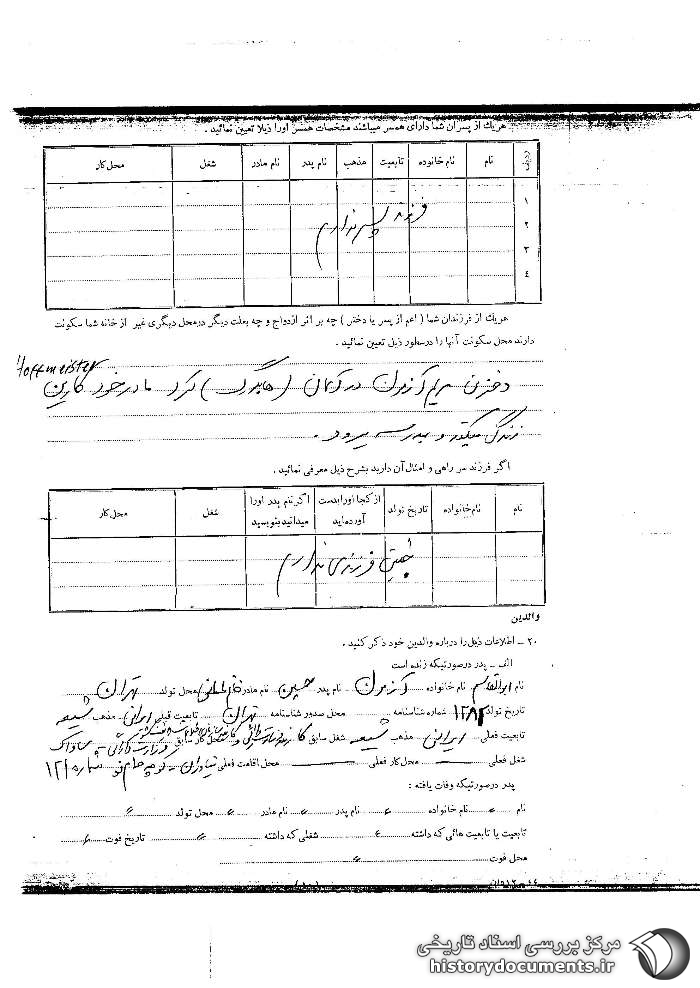 هریك از پسران شما دارای همسر میباشند مشخصات همسر اورا ذیلا تعیین نمائید .
ردیف نام نام خانواده تابعیت مذهب نام پدر نام مادر شغل محل کار
۱
۲
۳
٤
فرزند پسر ندارم
هریك از فرزندان شما ( اعم از پسر یا دختر ) چه بر اثر ازدواج و چه بعلت دیگر در محل دیگری غیر از خانه شما سکونت
دارند محل سکونت آنها را در سطور ذیل تعیین نمائید .
Hoffmeister
دخترم مریم آزمون در آلمان (هامبورگ) نزد مادر خود کارین
زندگی میکند و بمدرسه میرود .
اگر فرزند سر راهی و امثال آن دارید بشرح ذیل معرفی نمائید .
نام نام خانواده تاریخ تولد از کجا اورا بدست آورده اید اگر نام پدر اورا میدانید بنویسید شغل محل کار
چنین فرزندی ندارم
والدین
۲۰ ـ اطلاعات ذیل را درباره والدین خود ذکر کنید .
الف ـ پدر درصورتیکه زنده است
نام ابوالقاسم نام خانواده آزمون نام پدر حسین نام مادر محل تولد تهران
تاریخ تولد شماره شناسنامه محل صدور شناسنامه تهران تابعیت قبلی ایرانی مذهب شیعه
تابعیت فعلی ایرانی مذهب شیعه شغل سابق محل کار سابق
شغل فعلی محل کار فعلی محل اقامت فعلی نیاوران ـ کوچه حمام نو شماره ۱۲۱
پدر درصورتیکه وفات یافته :
نام نام خانواده نام پدر نام مادر محل تولد
تابعیت یا تابعیت هائی که داشته شغلی که داشته تاریخ فوت
محل فوت
مرکز بررسی اسناد تاریخی
historydocuments.ir